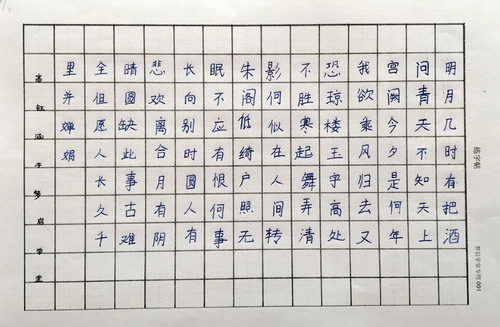 明月几时有把酒
问青天不知天上
宫阙今夕是何年
我欲乘风归去又
恐琼楼玉宇高处
不胜寒起舞弄清
影何似在人间转
朱阁低绮户照无
眠不应有恨何事
长向别时圆人有
悲欢离合月有阴
晴圆缺此事古难
全但愿人长久千
里并婵娟
高钰涵于梦启学堂
练字帖
001